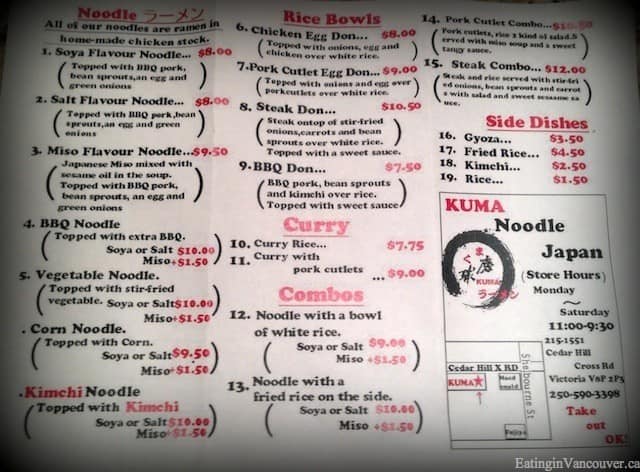 Noodle ラーメン
All of our noodles are ramen in
home-made chicken stock.
1. Soya Flavour Noodle... $8.00
(Topped with BBQ pork,
bean sprouts,an egg and
green onions)
2. Salt Flavour Noodle... $8.00
(Topped with BBQ pork,bean
sprouts,an egg and green
onions)
3. Miso Flavour Noodle...$9.50
(Japanese Miso mixed with
sesame oil in the soup.
Topped with BBQ pork,
bean sprouts, an egg and
green onions)
4. BBQ Noodle
(Topped with extra BBQ.
Soya or Salt $10.00
Miso+$1.50)
5. Vegetable Noodle.
(Topped with stir-fried
vegetable. Soya or Salt$10.00
Miso+$1.50)
. Corn Noodle.
(Topped with Corn.
Soya or Salt$9.50
Miso+$1.50)
.Kimchi Noodle
(Topped with Kimchi
Soya or Salt$10.00
Miso+$1.50)
Rice Bowls
6. Chicken Egg Don... $8.00
(Topped with onions, egg and
chicken over white rice.)
7.Pork Cutlet Egg Don...$9.00
(Topped with onions and egg over
porkcutlets over white rice.)
8. Steak Don... $10.50
(Steak ontop of stir-fried
onions,carrots and bean
sprouts over white rice.
Topped with a sweet sauce.)
9.BBQ Don... $7.50
(BBQ pork, bean sprouts
and kimchi over rice.
Topped with sweet sauce)
Curry
10. Curry Rice... $7.75
11. Curry with
pork cutlets ...$9.00
Combos
12. Noodle with a bowl
of white rice.
(Soya or Salt $9.00
Miso +$1.50)
13. Noodle with a
fried rice on the side.
(Soya or Salt $10.00
Miso +$1.50)
14. Pork Cutlet Combo...$10.50
(Pork cutlets, rice 2 kind of salad.S
erved with miso soup and a sweet
tangy sauce.)
15. Steak Combo... $12.00
(Steak and rice served with stir-fri
ed onions, bean sprouts and carrot
s with salad and sweet sesame sa
uce.)
Side Dishes
16. Gyoza... $3.50
17. Fried Rice... $4.50
18. Kimchi... $2.50
19. Rice... $1.50
KUMA
Noodle
Japan
くま
球磨
KUMA
ラーメン
(Store Hours)
Monday
～
Saturday
11:00-9:30
215-1551
Cedar Hill
Cross Rd
Victoria V8P 2P5
250-590-3398
Take
out
OK!
Cedar Hill X RD
KUMA★
Shelbourne St
EatinginVancouver.ca